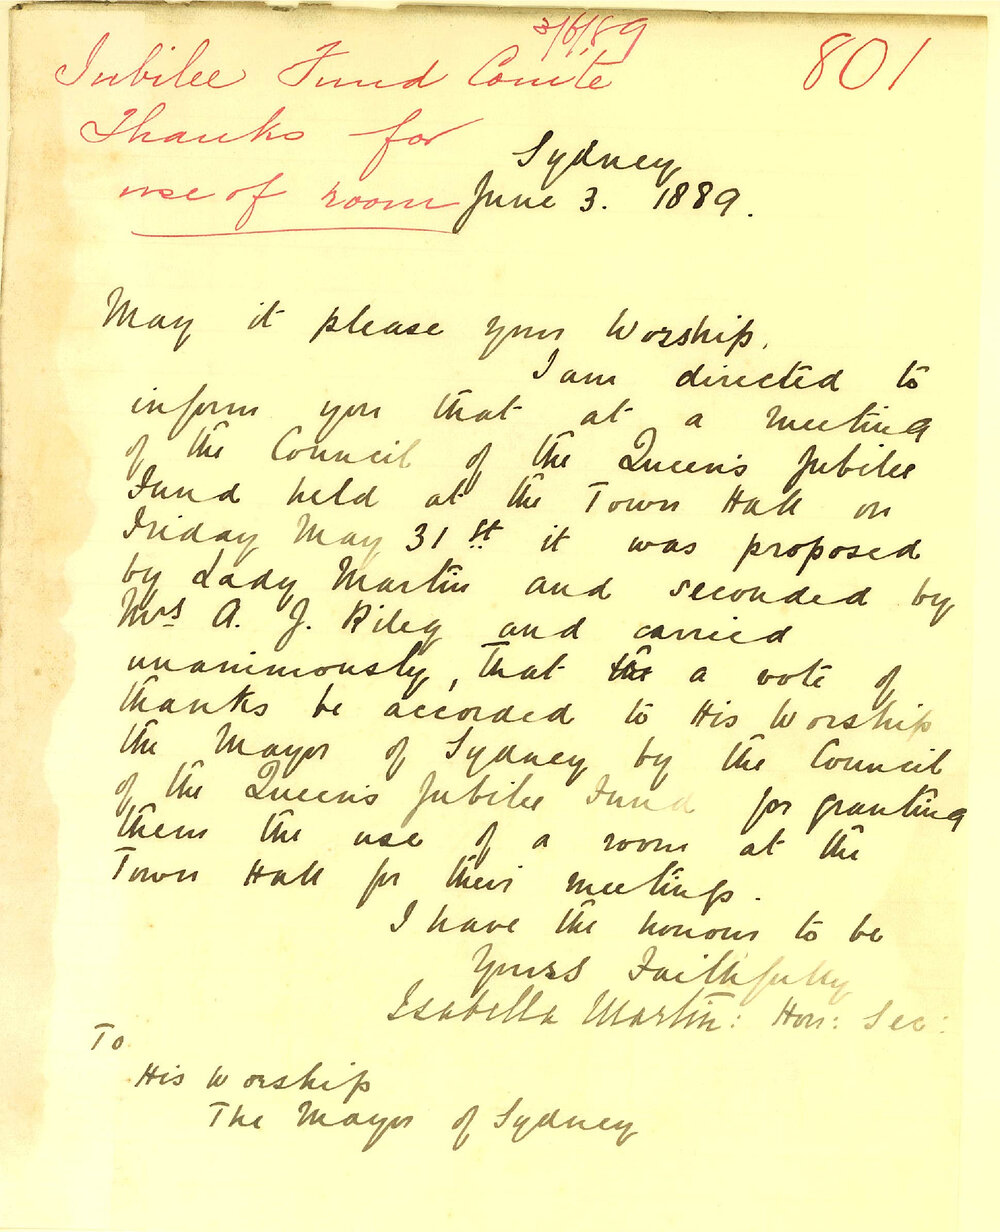 3/6/89
801
Jubilee Fund Comte
Thanks for
use of room
Sydney
June 3. 1889.
May it please your Worship,
I am directed to
inform you that at a meeting
of the Council of the Queen's Jubilee
Fund held at the Town Hall on
Friday May 31st it was proposed
by Lady Martin and seconded by
Mrs A. J. Riley and carried
unanimously, that the a vote of
thanks be accorded to His Worship
the Mayor of Sydney by the Council
of the Queen's Jubilee Fund for granting
them the use of a room at the
Town Hall for their meetings.
I have the honour to be
Yours Faithfully
Isabella Martin: Hon: Sec:
To
His Worship
The Mayor of Sydney